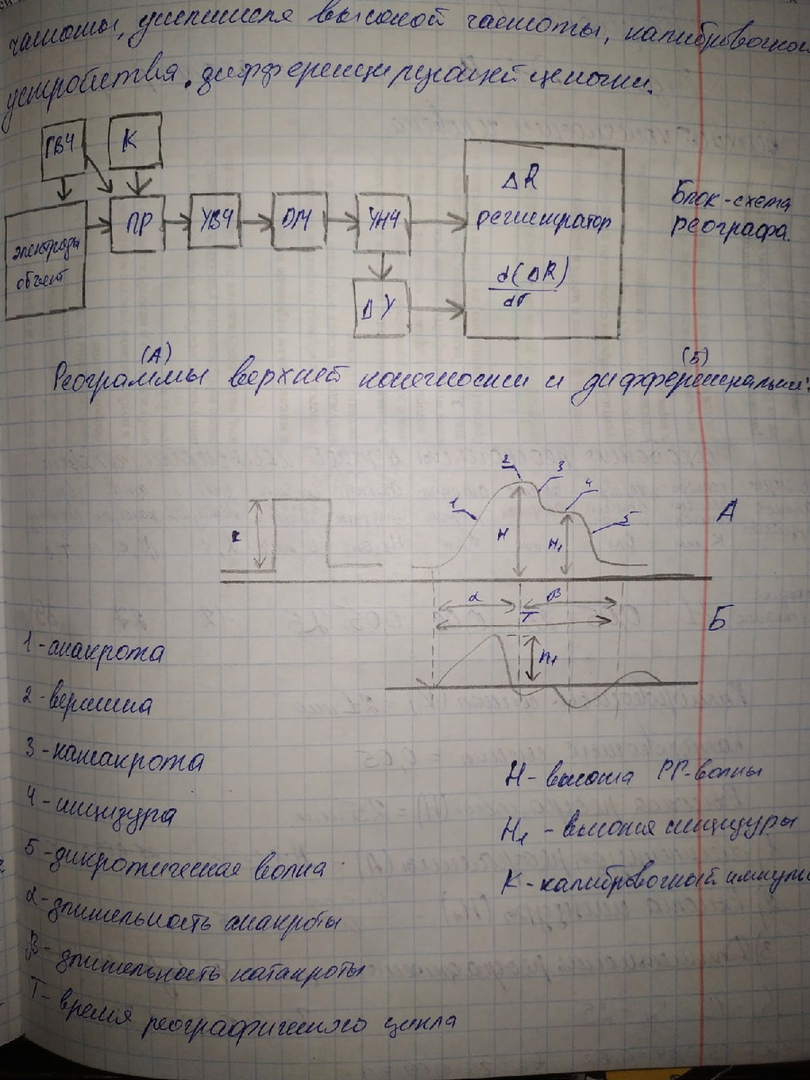 частоты, усилителя высокой частоты, калибровочного
устройства, дифференцирующей цепочки.
ГВЧ
К
ПР
УВЧ
ДМ
УНЧ
электроды
объект
ΔУ
ΔR
регистратор
d(ΔR)
dt
Блок-схема
реографа.
(А) (Б)
Реограммы верхней конечности и дифференциальный:
1 2 3 4 5
К
H
H₁
А
α β
T
Б
h₁
1 - анакрота
2 - вершина
3 - катакрота
4 - инцизура
5 - дикротическая волна
α - длительность анакроты
β - длительность катакроты
T - время реографического цикла
H - высота РГ-волны
H₁ - высота инцизуры
К - калибровочный импульс